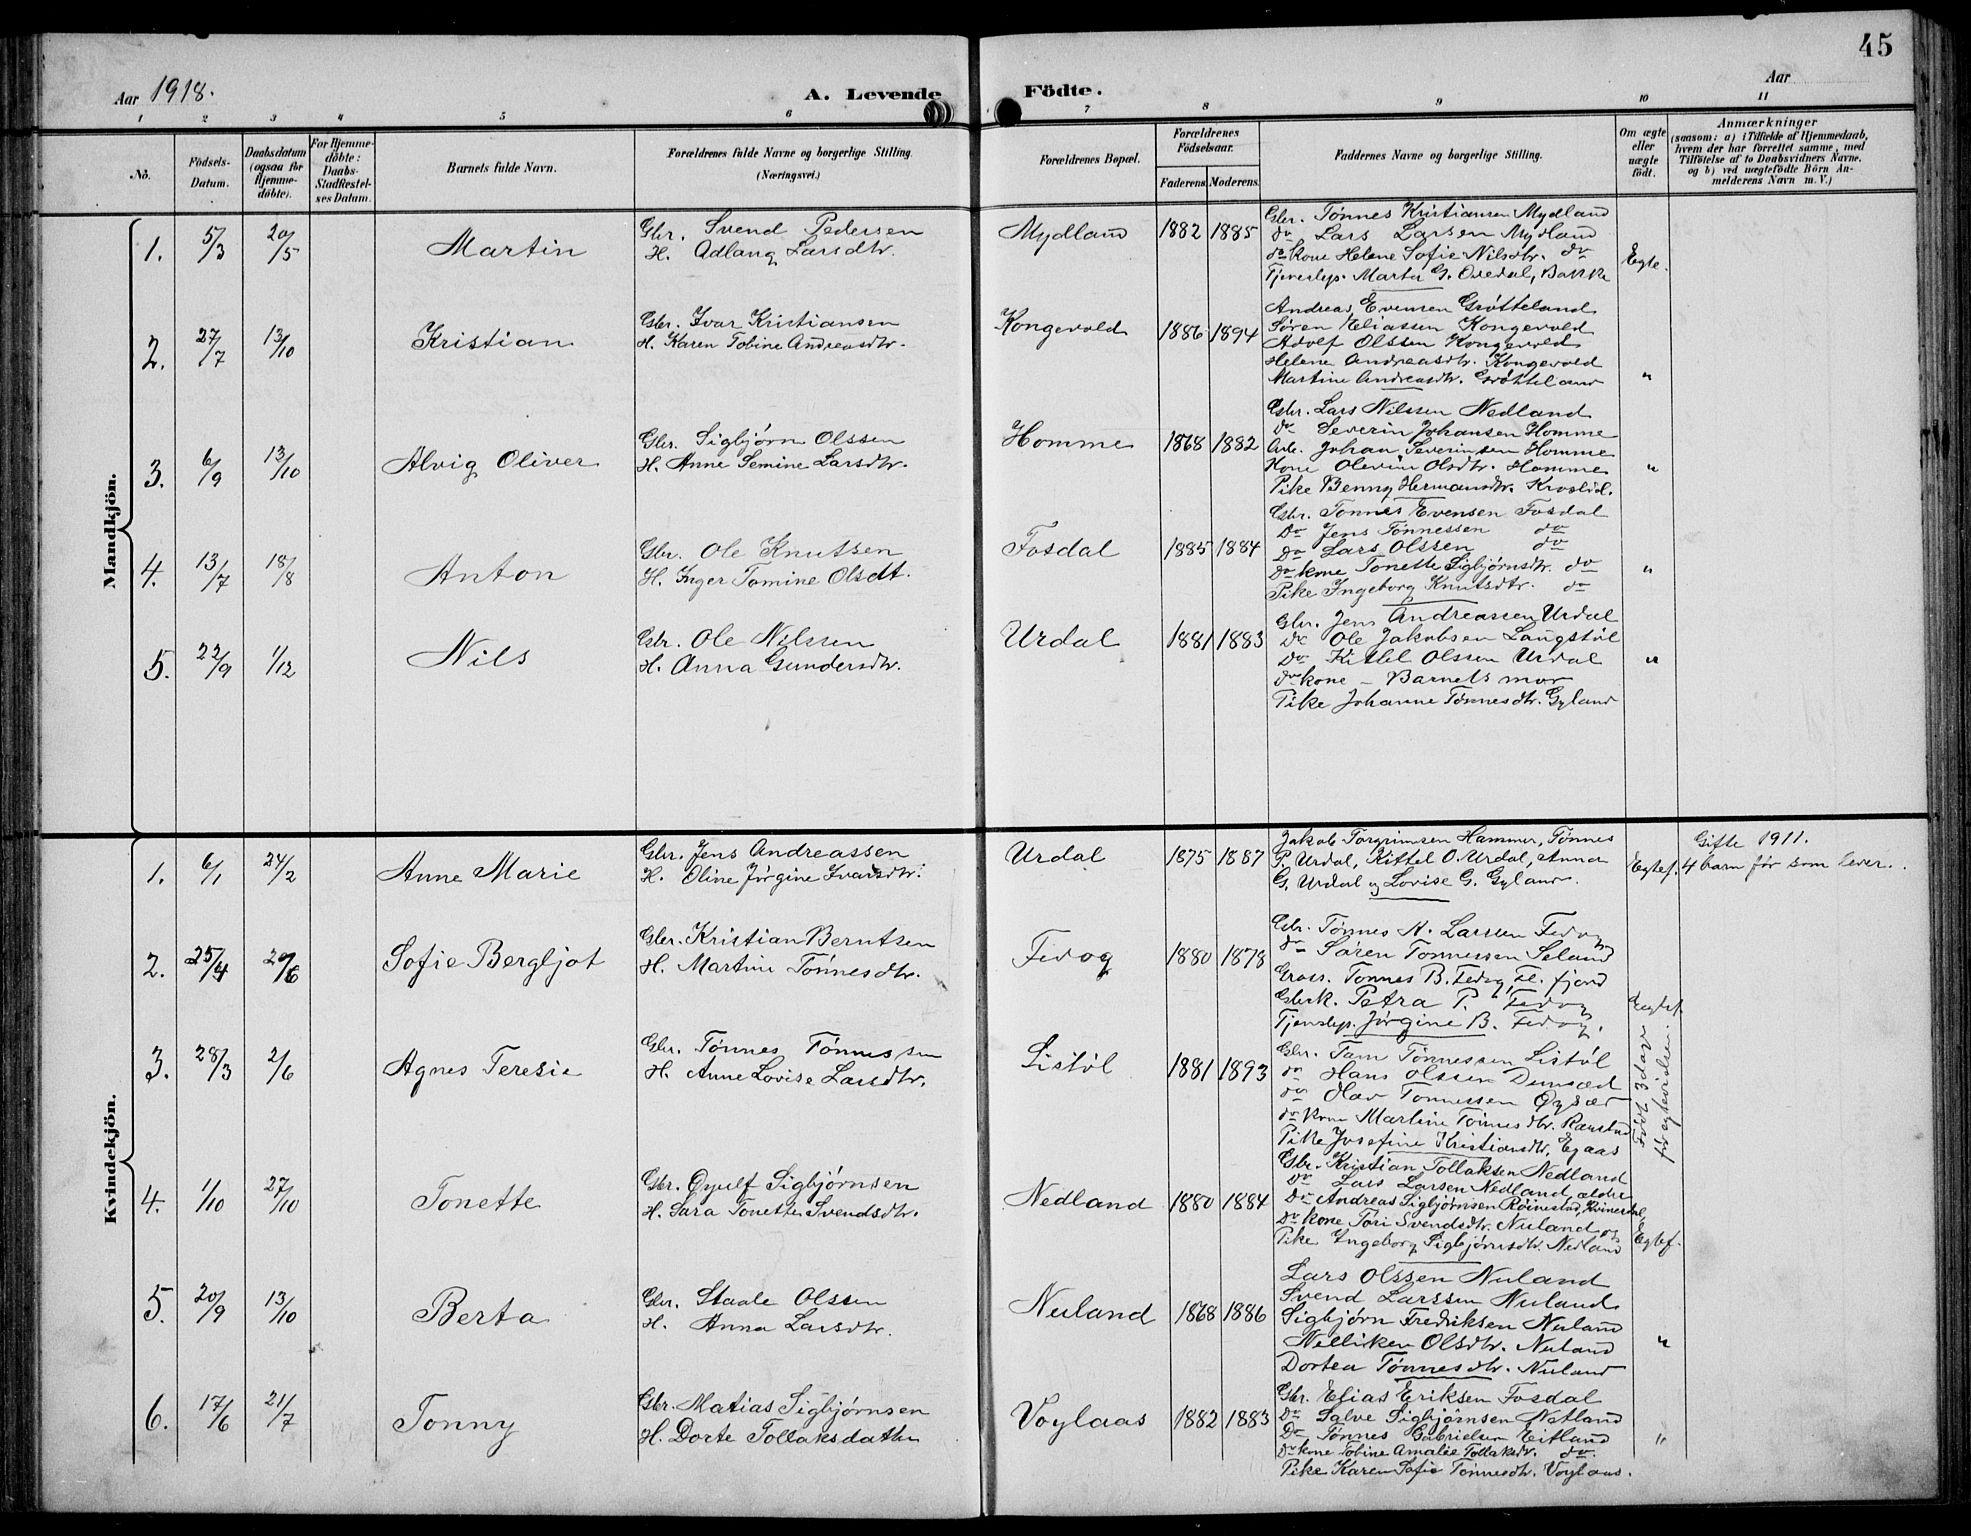 45
Aar 1918. A. Levende Födte. Aar
1 2 3 4 5 6 7 8 9 10 11
No. Födsels-Datum. Daabsdatum (ogsaa for Hjemme-döbte). For Hjemme-döbte: Daabs-Stadfæstel-ses Datum. Barnets fulde Navn. Forældrenes fulde Navne og borgerlige Stilling. (Næringsvei.) Forældrenes Bopæl. Forældrenes Födselsaar. Faderens. Moderens. Faddernes Navne og borgerlige Stilling. Om ægte eller uægte födt. Anmærkninger (saasom: a) i Tilfælde af Hjemmedaab, hvem der har forrettet samme, med Tilföielse af to Daabsvidners Navne, og b) ved uægtefödte Börn An-melderens Navn m. V.)
Mandkjön.
1. 5/3 20/5 Martin
Gbr. Svend Pedersen
H. Adlaug Larsdtr.
Mydland 1882 1885
Gbr. Tønnes Kristiansen Mydland
do Lars Larsen Mydland
do kone Helene Sofie Nilsdtr. do
Tjenestep. Marta G. Osedal, Bakke
Egte.
2. 27/7 13/10 Kristian
Gbr. Ivar Kristiansen
H. Karen Tobine Andreasdtr.
Kongevold 1886 1894
Andreas Evensen Grøtteland
Søren Eliassen Kongevold
Adolf Olssen Kongevold
Helene Andreasdtr. Kongevold
Martine Andreasdtr. Grøtteland
"
3. 6/9 13/10 Alvig Oliver
Gbr. Sigbjørn Olssen
H. Anne Semine Larsdtr.
Homme 1868 1882
Gbr. Lars Nilssen Nedland
do Severin Johansen Homme
Arb. Johan Severinsen Homme
Kone Olevine Olsdtr. Homme
Pike Benny Hermansdtr. Kroslid.
"
4. 13/7 18/8 Anton
Gbr. Ole Knutsen
H. Inger Tomine Olsdt.
Fosdal 1885 1884
Gbr. Tønnes Evensen Fosdal
Do Jens Tønnessen do
Do Lars Olssen do
Do kone Tonette Sigbjørnsdtr. do
Pike Ingeborg Knutsdtr. do
"
5. 22/9 1/12 Nils
Gbr. Ole Nilssen
H. Anna Gundersdtr.
Urdal 1881 1883
Gbr. Jens Andreassen Urdal
Do Ole Jakobsen Langstøl
Do Kittel Olssen Urdal
do kone - Barnets mor
Pike Johanne Tønnesdtr. Gyland
"
Kvindekjön.
1. 6/1 24/2 Anne Marie
Gbr. Jens Andreassen
H. Oline Jørgine Ivarsdtr.
Urdal 1875 1887
Jakob Torgrimsen Hammer, Tønnes
P. Urdal, Kittel O. Urdal, Anna
G. Urdal og Lovise G. Gyland.
Egtef.
Gifte 1911.
4 barn før som lever.
2. 25/4 20/6 Sofie Bergljot
Gbr. Kristian Berntsen
H. Martine Tønnesdtr.
Fedog 1880 1878
Gbr. Tønnes K. Larssen Fedog
do Søren Tønnessen Seland
Gross. Tønnes B. Fedog, Fl. fjord
Gbrk. Petra P. Fedog
Tjenstep. Jørgine B. Fedog.
Egtef.
3. 28/3 2/6 Agnes Teresie
Gbr. Tønnes Tønnessen
H. Anne Lovise Larsdtr.
Listøl 1881 1893
Gbr. Tam Tønnessen Listøl
do Hans Olssen
do Olav Tønnessen
do kone Martine Tønnesdtr.
Pike Josefine Kristiansdtr. Egaas
Født 3 dage
før egtevielsen.
4. 1/10 27/10 Tonette
Gbr. Øyulf Sigbjørnsen
H. Sara Tonette Svendsdtr.
Nedland 1880 1884
Gbr. Kristian Tollaksen Nedland
Do Lars Larsen Nedland, ældre
Do Andreas Sigbjørnsen Røinestad, Kvinesdal,
Do kone Tori Svendsdtr. Nuland og
Pike Ingeborg Sigbjørnsdtr. Nedland
Egtef.
5. 20/9 13/10 Berta
Gbr. Staale Olssen
H. Anna Larsdtr.
Nuland 1868 1886
Lars Olssen Nuland
Svend Larssen Nuland
Sigbjørn Fredriksen Nuland
Nelliken Olsdtr. Nuland
Dortea Tønnesdtr. Nuland
"
6. 17/6 21/7 Tonny
Gbr. Matias Sigbjørnsen
H. Dorte Tollaksdatter
Voylaas 1882 1883
Gbr. Elias Eriksen Fosdal
Do Salve Sigbjørnsen Netland
Do Tønnes Gabrielsen Eitland
Do kone Tobine Amalie Tollaksdr. do.
Pike Karen Sofie Tønnesdtr. Voylaas.
"